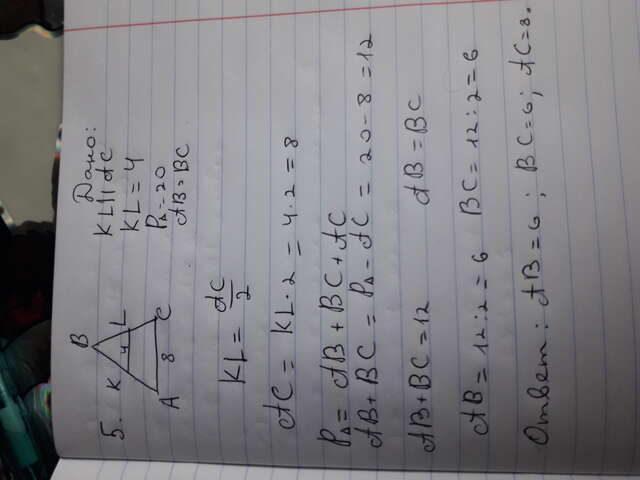 5.
B
K 4 L
A 8 C
Дано:
KL || AC
KL = 4
P△ = 20
AB = BC
KL = AC/2
AC = KL · 2 = 4 · 2 = 8
P△ = AB + BC + AC
AB + BC = P△ - AC = 20 - 8 = 12
AB + BC = 12 AB = BC
AB = 12 : 2 = 6 BC = 12 : 2 = 6
Ответ: AB = 6 ; BC = 6; AC = 8.